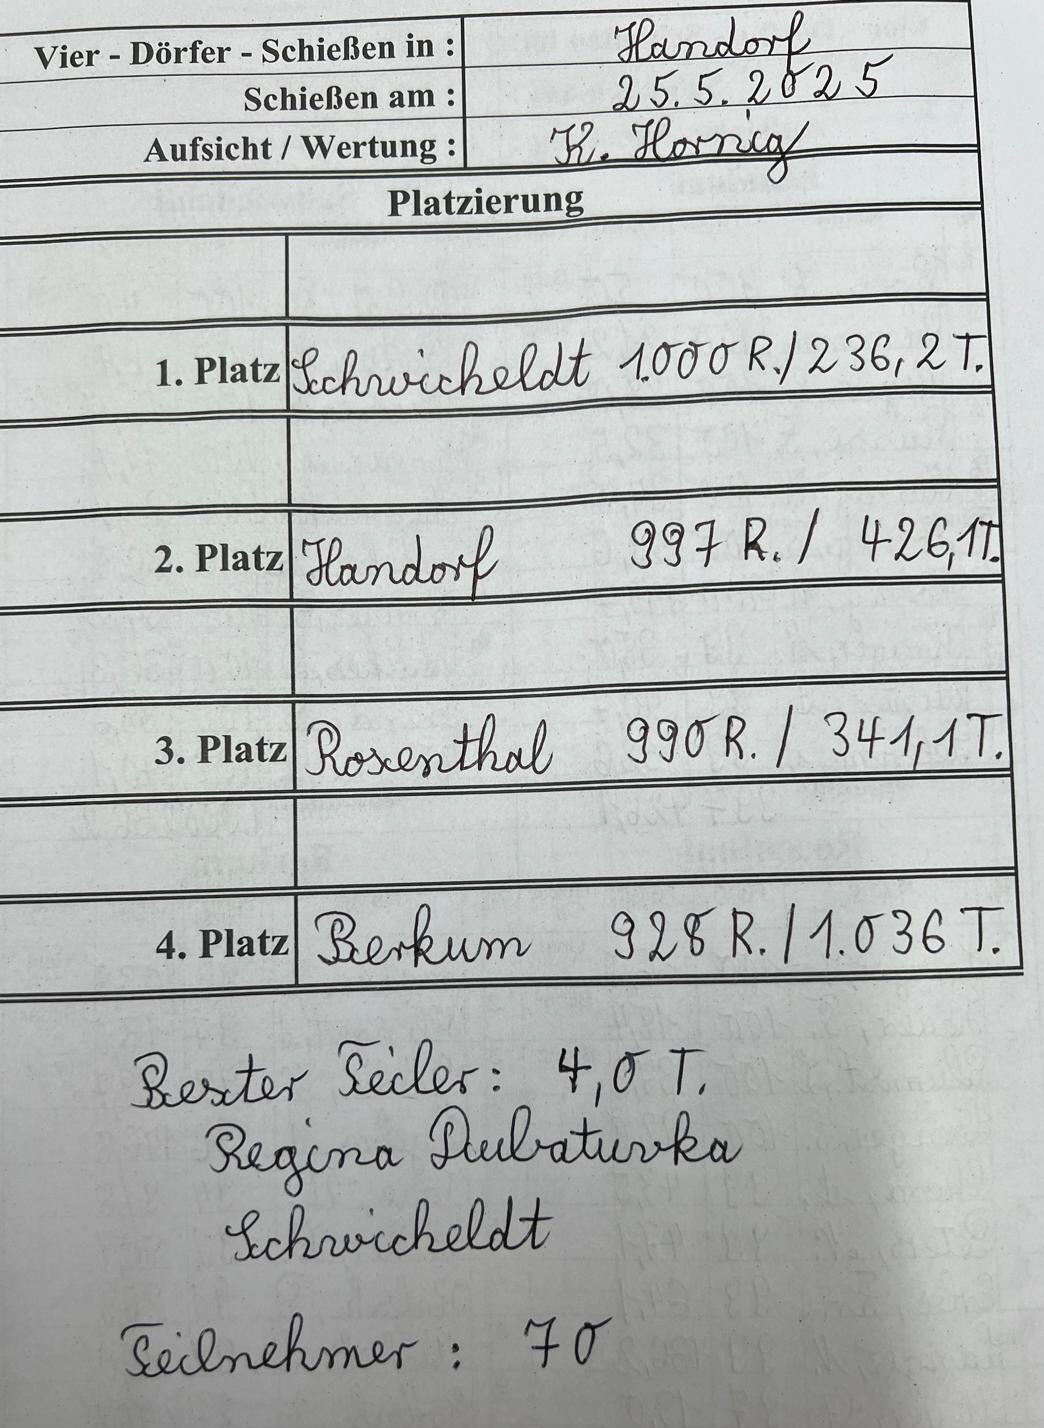 Vier - Dörfer - Schießen in : Handorf
Schießen am : 25.5.2025
Aufsicht / Wertung : K. Hornig
Platzierung
1. Platz Schwicheldt 1.000 R. / 236,2 T.
2. Platz Handorf 997 R. / 426,1 T.
3. Platz Rosenthal 990 R. / 341,1 T.
4. Platz Berkum 928 R. / 1.036 T.
Bester Teiler : 4,0 T.
Regina Dubaturka
Schwicheldt
Teilnehmer : 70